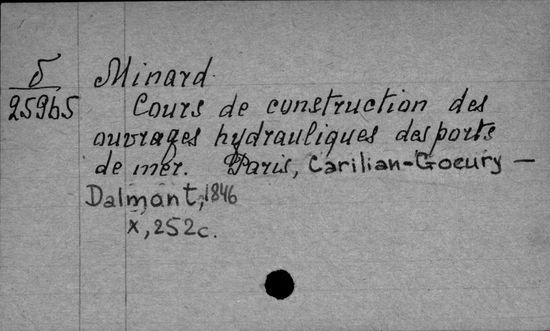 Б
25965
Minard
Cours de construction des
ouvrages hydrauliques des ports
de mer. Paris, Carilian-Goeury —
Dalmont, 1846
x, 252c.